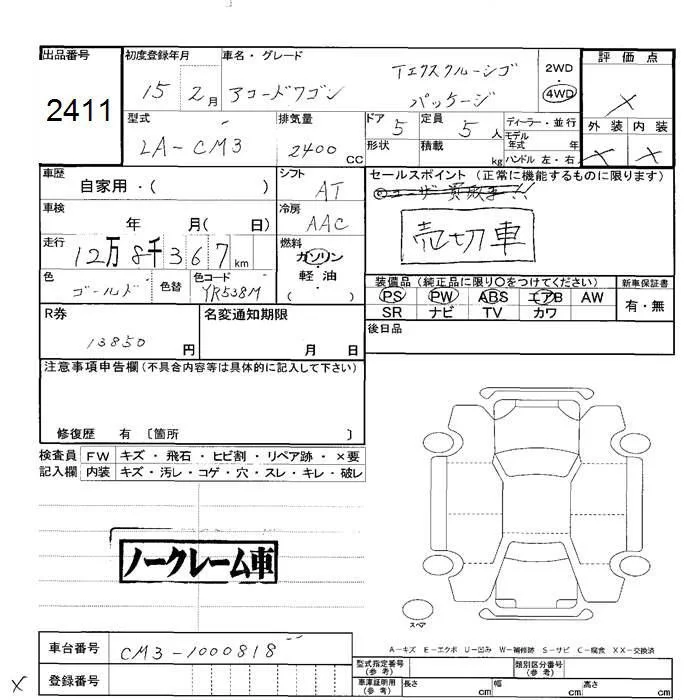 出品番号 初度登録年月 車名・グレード 評価点
2411 15年 2月 アコードワゴン Tエクスクルーシブ パッケージ 2WD 4WD ×
型式 排気量 ドア 5 定員 5人 ディーラー・並行 外装 内装
LA-CM3 2400CC 形状 積載 kg モデル年式 年 ハンドル 左・右 × ×
車歴 自家用・( ) シフト AT セールスポイント (正常に機能するものに限ります)
車検 年 月( 日) 冷房 AAC ユーザー買取車!!
売切車
走行 12万8千367km 燃料 ガソリン・軽油 ( )
色 ゴールド 色替 色コード YR538M
装備品 (純正品に限り○をつけてください) 新車保証書
PS PW ABS エアB AW 有・無
SR ナビ TV カワ
R券 13850円 名変通知期限 月 日 後日品
注意事項申告欄(不具合内容等は具体的に記入して下さい)
修復歴 有 〔箇所 〕
検査員 FW キズ・飛石・ヒビ割・リペア跡・×要
記入欄 内装 キズ・汚レ・コゲ・穴・スレ・キレ・破レ
ノークレーム車
スペア
車台番号 CM3-1000818
A-キズ E-エクボ U-凹み W-補修跡 S-サビ C-腐食 XX-交換済
登録番号
型式指定番号(参考) 類別区分番号(参考)
車庫証明用(参考) 長さ cm 幅 cm 高さ cm
×